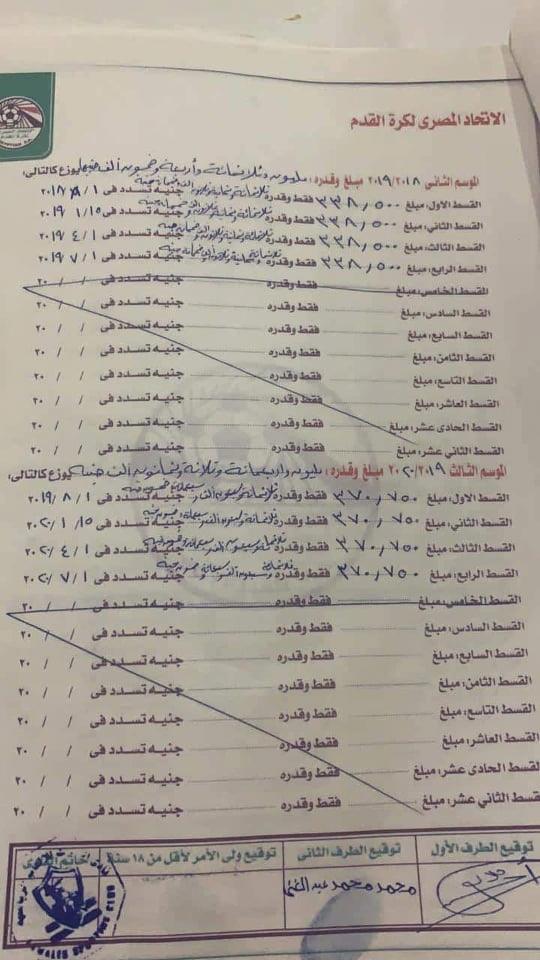 الاتحاد المصرى لكرة القدم
الموسم الثانى ٢٠١٩/٢٠١٨ مبلغ وقدره: مليون وثلاثمائة وأربعة وخمسون ألف جنيها يوزع كالتالى:
القسط الاول، مبلغ ٣٣٨,٥٠٠ فقط وقدره ثلاثمائة وثمانية وثلاثون ألف وخمسمائة جنيه تسدد فى ١ / ٨ / ٢٠١٨
القسط الثانى، مبلغ ٣٣٨,٥٠٠ فقط وقدره ثلاثمائة وثمانية وثلاثون ألف وخمسمائة جنيه تسدد فى ١٥ / ١ / ٢٠١٩
القسط الثالث، مبلغ ٣٣٨,٥٠٠ فقط وقدره ثلاثمائة وثمانية وثلاثون ألف وخمسمائة جنيه تسدد فى ١ / ٤ / ٢٠١٩
القسط الرابع، مبلغ ٣٣٨,٥٠٠ فقط وقدره ثلاثمائة وثمانية وثلاثون ألف وخمسمائة جنيه تسدد فى ١ / ٧ / ٢٠١٩
القسط الخامس، مبلغ فقط وقدره جنيه تسدد فى / / ٢٠
القسط السادس، مبلغ فقط وقدره جنيه تسدد فى / / ٢٠
القسط السابع، مبلغ فقط وقدره جنيه تسدد فى / / ٢٠
القسط الثامن، مبلغ فقط وقدره جنيه تسدد فى / / ٢٠
القسط التاسع، مبلغ فقط وقدره جنيه تسدد فى / / ٢٠
القسط العاشر، مبلغ فقط وقدره جنيه تسدد فى / / ٢٠
القسط الحادى عشر، مبلغ فقط وقدره جنيه تسدد فى / / ٢٠
القسط الثانى عشر، مبلغ فقط وقدره جنيه تسدد فى / / ٢٠
الموسم الثالث ٢٠٢٠/٢٠١٩ مبلغ وقدره: مليون وأربعمائة وثلاثة وثمانون ألف جنيه يوزع كالتالى:
القسط الاول، مبلغ ٣٧٠,٧٥٠ فقط وقدره ثلاثمائة وسبعون ألف وسبعمائة وخمسون جنيه تسدد فى ١ / ٨ / ٢٠١٩
القسط الثانى، مبلغ ٣٧٠,٧٥٠ فقط وقدره ثلاثمائة وسبعون ألف وسبعمائة وخمسون جنيه تسدد فى ١٥ / ١ / ٢٠٢٠
القسط الثالث، مبلغ ٣٧٠,٧٥٠ فقط وقدره ثلاثمائة وسبعون ألف وسبعمائة وخمسون جنيه تسدد فى ١ / ٤ / ٢٠٢٠
القسط الرابع، مبلغ ٣٧٠,٧٥٠ فقط وقدره ثلاثمائة وسبعون ألف وسبعمائة وخمسون جنيه تسدد فى ١ / ٧ / ٢٠٢٠
القسط الخامس، مبلغ فقط وقدره جنيه تسدد فى / / ٢٠
القسط السادس، مبلغ فقط وقدره جنيه تسدد فى / / ٢٠
القسط السابع، مبلغ فقط وقدره جنيه تسدد فى / / ٢٠
القسط الثامن، مبلغ فقط وقدره جنيه تسدد فى / / ٢٠
القسط التاسع، مبلغ فقط وقدره جنيه تسدد فى / / ٢٠
القسط العاشر، مبلغ فقط وقدره جنيه تسدد فى / / ٢٠
القسط الحادى عشر، مبلغ فقط وقدره جنيه تسدد فى / / ٢٠
القسط الثانى عشر، مبلغ فقط وقدره جنيه تسدد فى / / ٢٠
توقيع الطرف الأول توقيع الطرف الثانى توقيع ولى الأمر لأقل من ١٨ سنة خاتم النادى
محمد محمد عبد الغنى